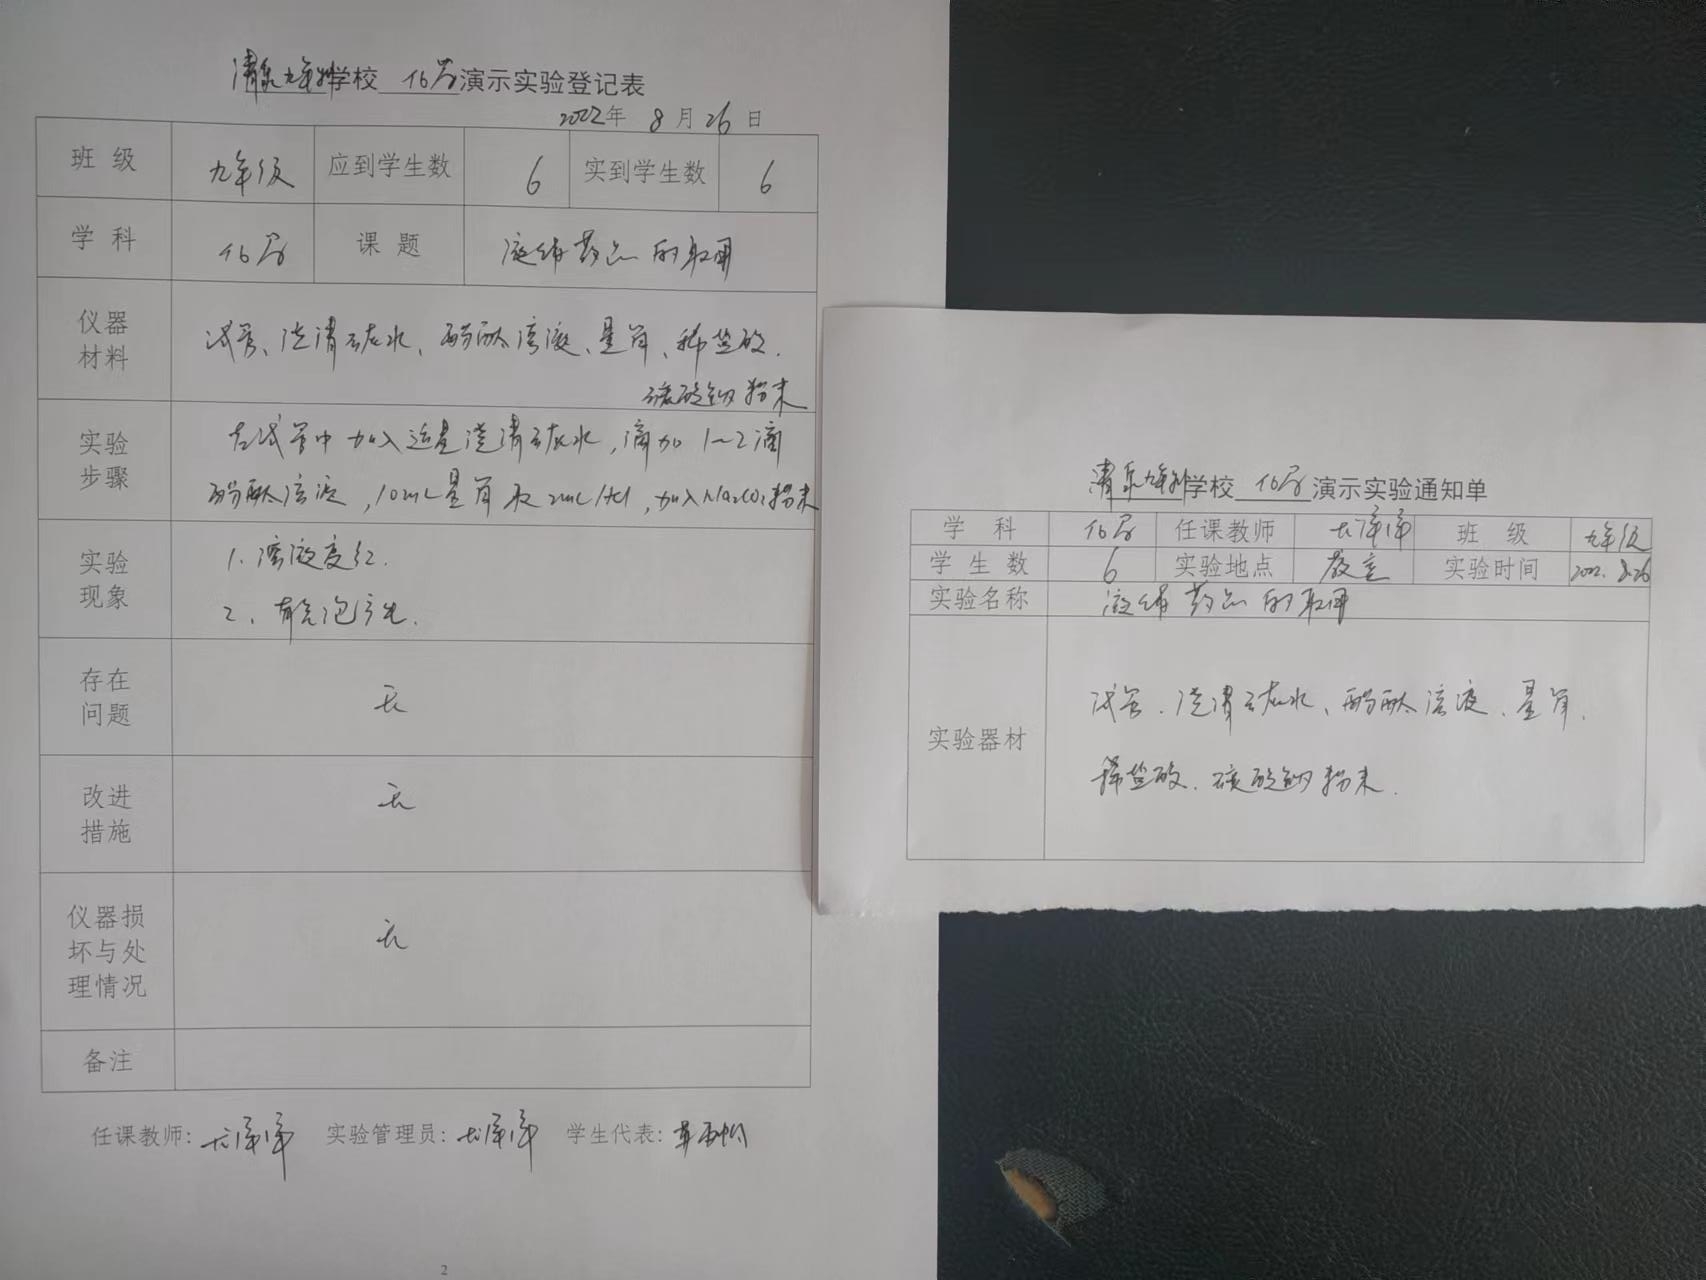 学校 化学 演示实验登记表
2022年 8月26日
班级 九年级 应到学生数 6 实到学生数 6
学科 化学 课题 液体药品的取用
仪器
材料
试管、澄清石灰水、酚酞溶液、量筒、稀盐酸.
碳酸钠粉末
实验
步骤
在试管中加入适量澄清石灰水,滴加1~2滴
酚酞溶液,10mL量筒取2mLHCl,加入Na2CO3粉末
实验
现象
1.溶液变红.
2、有气泡产生.
存在
问题
无
改进
措施
无
仪器损
坏与处
理情况
无
备注
任课教师: 实验管理员: 学生代表:
2
学校 化学 演示实验通知单
学科 化学 任课教师 班级 九年级
学生数 6 实验地点 教室 实验时间 2022.8.26
实验名称 液体药品的取用
实验器材
试管.澄清石灰水、酚酞溶液、量筒.
稀盐酸.碳酸钠粉末.